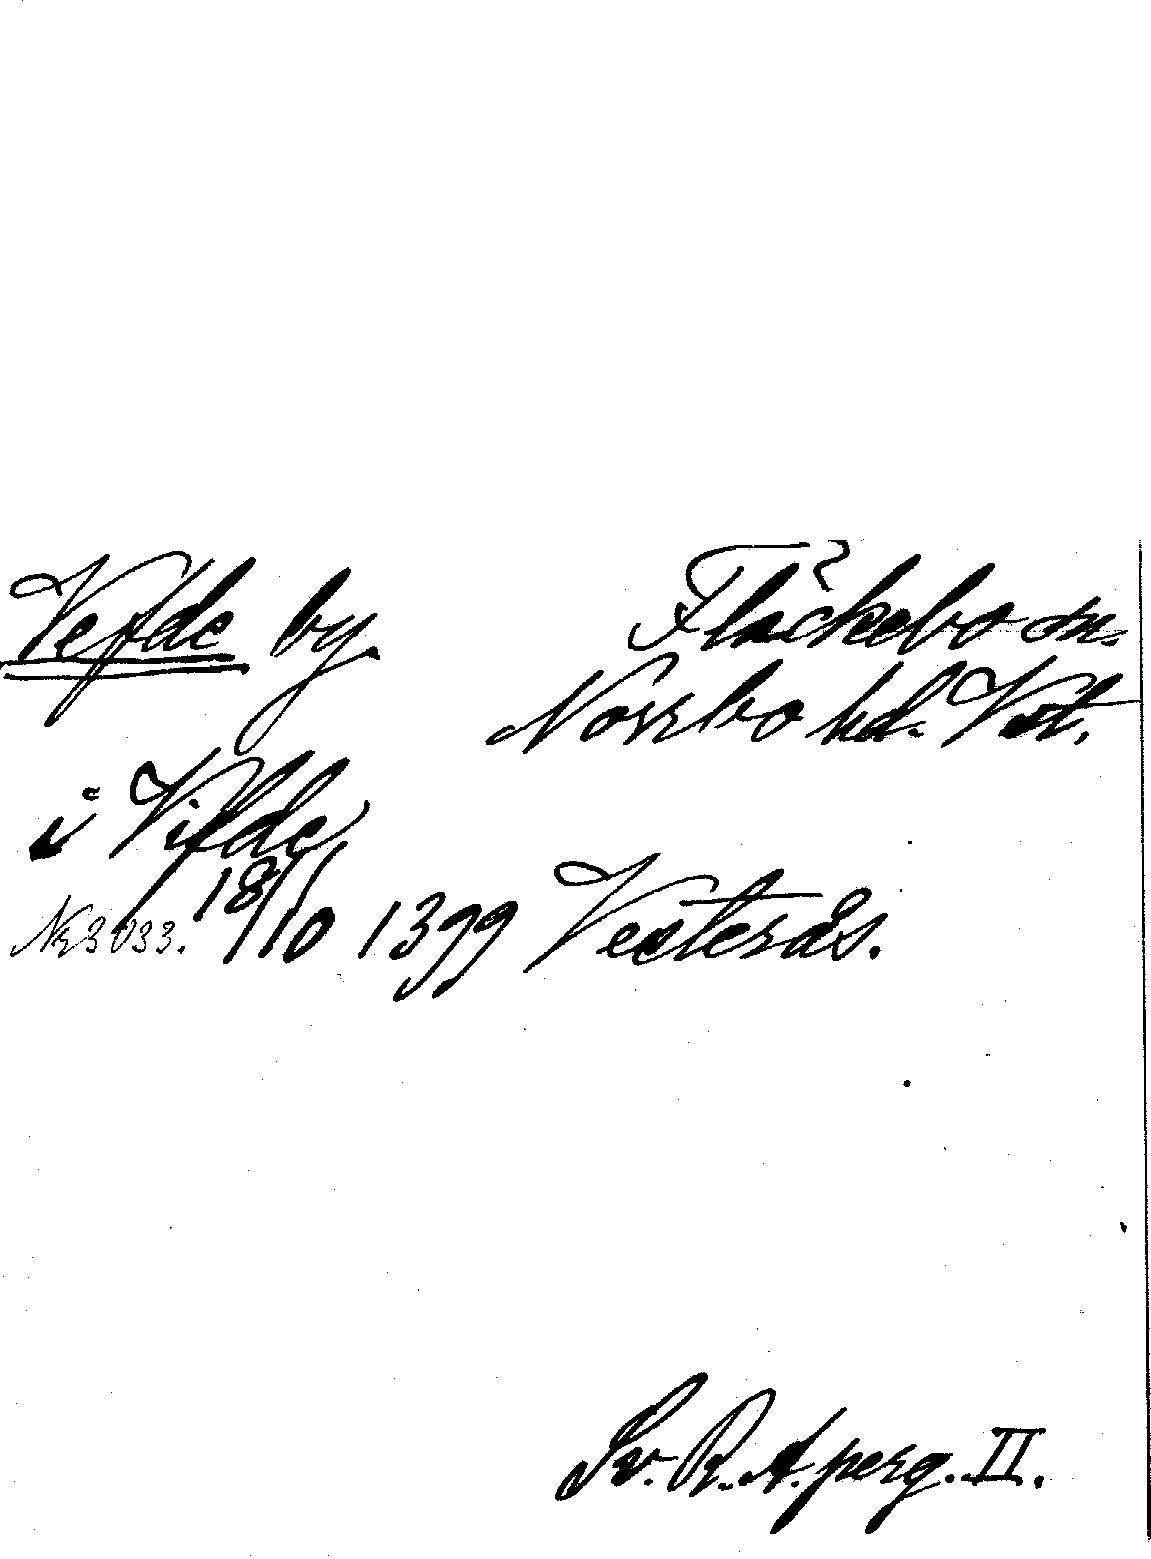 Vefde by. Fläckebo sn.
Norrbo hd. Vstl.
i Vifde
Nr 3033. 18/10 1399 Vesterås.
Sv. R. A. perg. II.